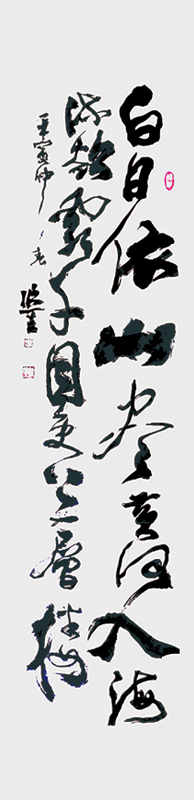 白日依山尽黄河入海
流欲窮千目更上一層楼
壬寅仲春